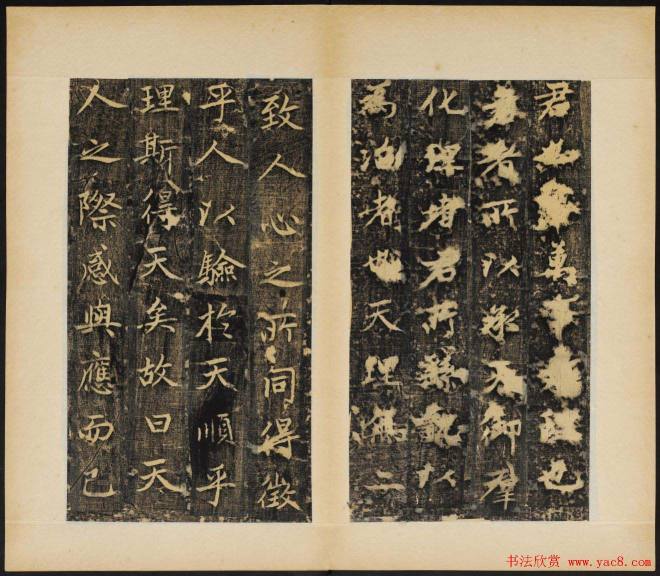 君也萬事也
者所以承天御羣
化者君所以
為治者天理無二
致人心之所同得徵
乎人以驗於天順乎
理斯得天矣故曰天
人之際感與應而已
书法欣赏 www.yac8.com